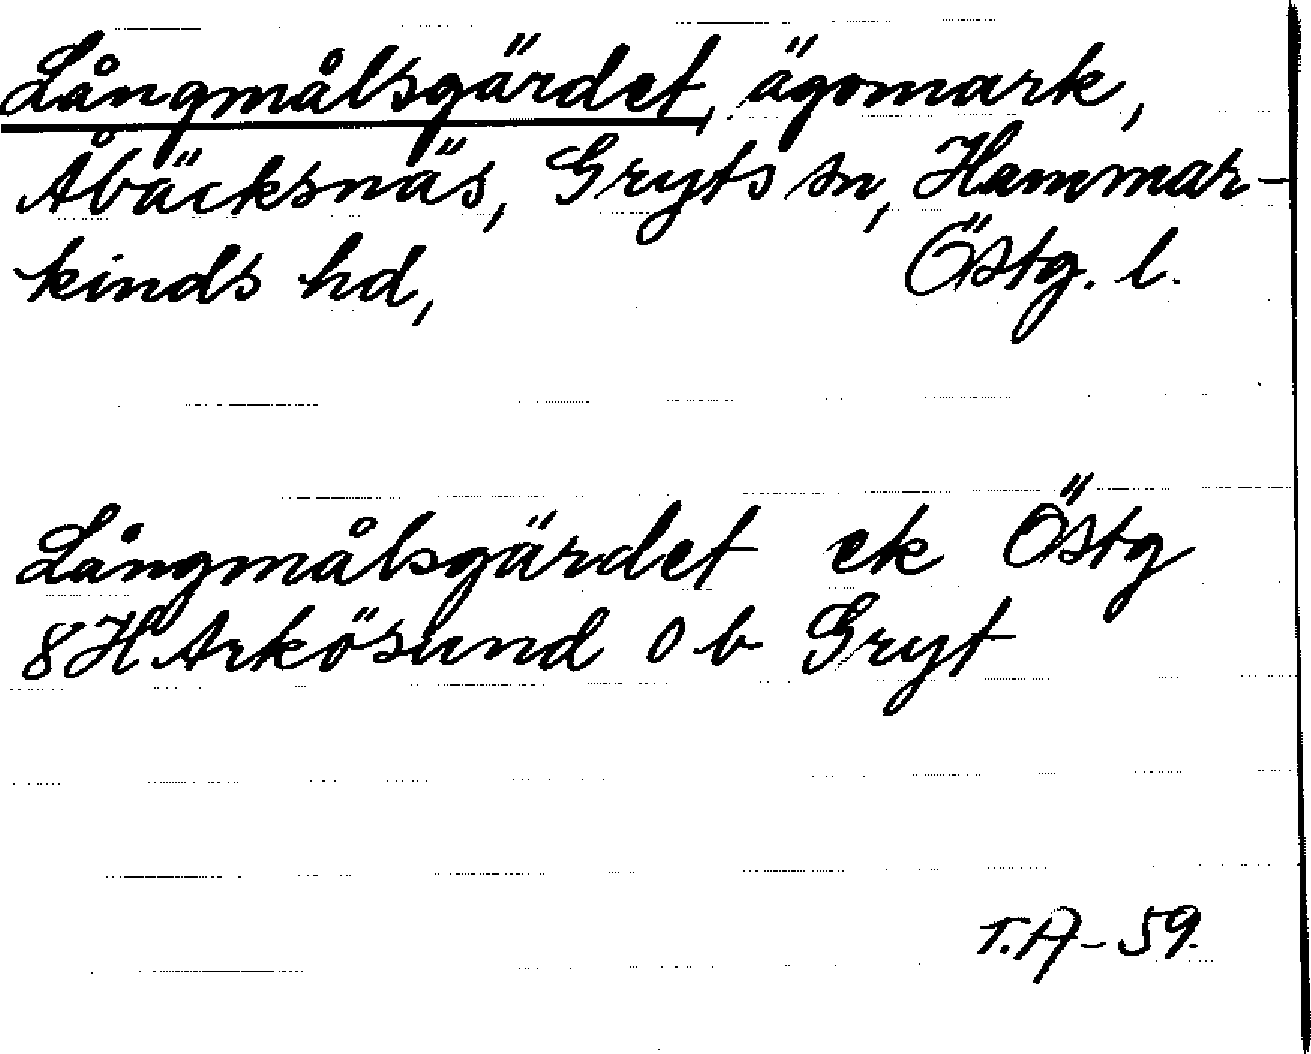 Långmålsgärdet, ägomark,
Åbäcksnäs, Gryts sn, Hammar-
kinds hd, Östg. l.
Långmålsgärdet ek Östg
8H Arkösund o b Gryt
T.A-59.